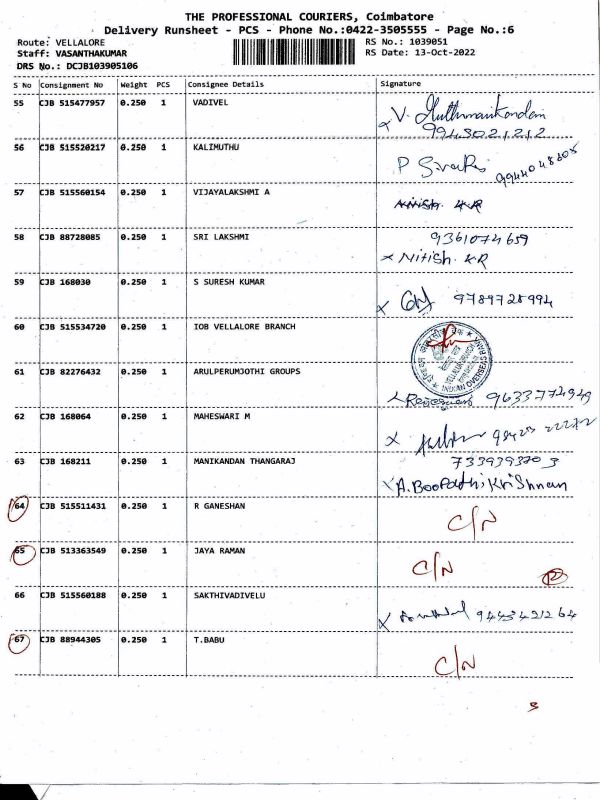 THE PROFESSIONAL COURIERS, Coimbatore
Delivery Runsheet - PCS - Phone No.:0422-3505555 - Page No.:6
Route: VELLALORE
RS No.: 1039051
Staff: VASANTHAKUMAR
RS Date: 13-Oct-2022
DRS No.: DCJB103905106
S No Consignment No Weight PCS Consignee Details Signature
55 CJB 515477957 0.250 1 VADIVEL V. Muthumanikandan
9943021212
56 CJB 515520217 0.250 1 KALIMUTHU P 9944048805
57 CJB 515560154 0.250 1 VIJAYALAKSHMI A Nitish. KR
58 CJB 88728085 0.250 1 SRI LAKSHMI 9361074659
x Nitish. KR
59 CJB 168030 0.250 1 S SURESH KUMAR x 9789728994
60 CJB 515534720 0.250 1 IOB VELLALORE BRANCH
VELLALORE BRANCH
INDIAN OVERSEAS BANK
61 CJB 82276432 0.250 1 ARULPERUMJOTHI GROUPS 9633774949
62 CJB 168064 0.250 1 MAHESWARI M x 98425 22272
63 CJB 168211 0.250 1 MANIKANDAN THANGARAJ 7339393703
A. Boopathi Krishnan
64 CJB 515511431 0.250 1 R GANESHAN C/N
65 CJB 513363549 0.250 1 JAYA RAMAN C/N
66 CJB 515560188 0.250 1 SAKTHIVADIVELU x 9443491264
67 CJB 88944305 0.250 1 T.BABU C/N
3